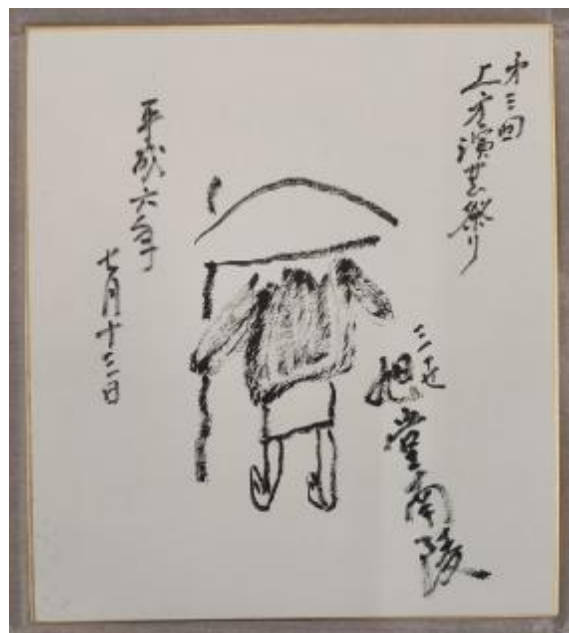 第三回
上方演芸祭り
三世
旭堂南陵
平成六年
七月十三日